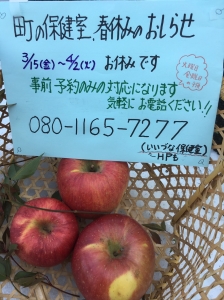 町の保健室、春休みのおしらせ
3/15(金)〜4/2(火) お休みです
事前予約のみの対応になります
気軽にお電話ください!!
080-1165-7277
(いいづな保健室)
HPも